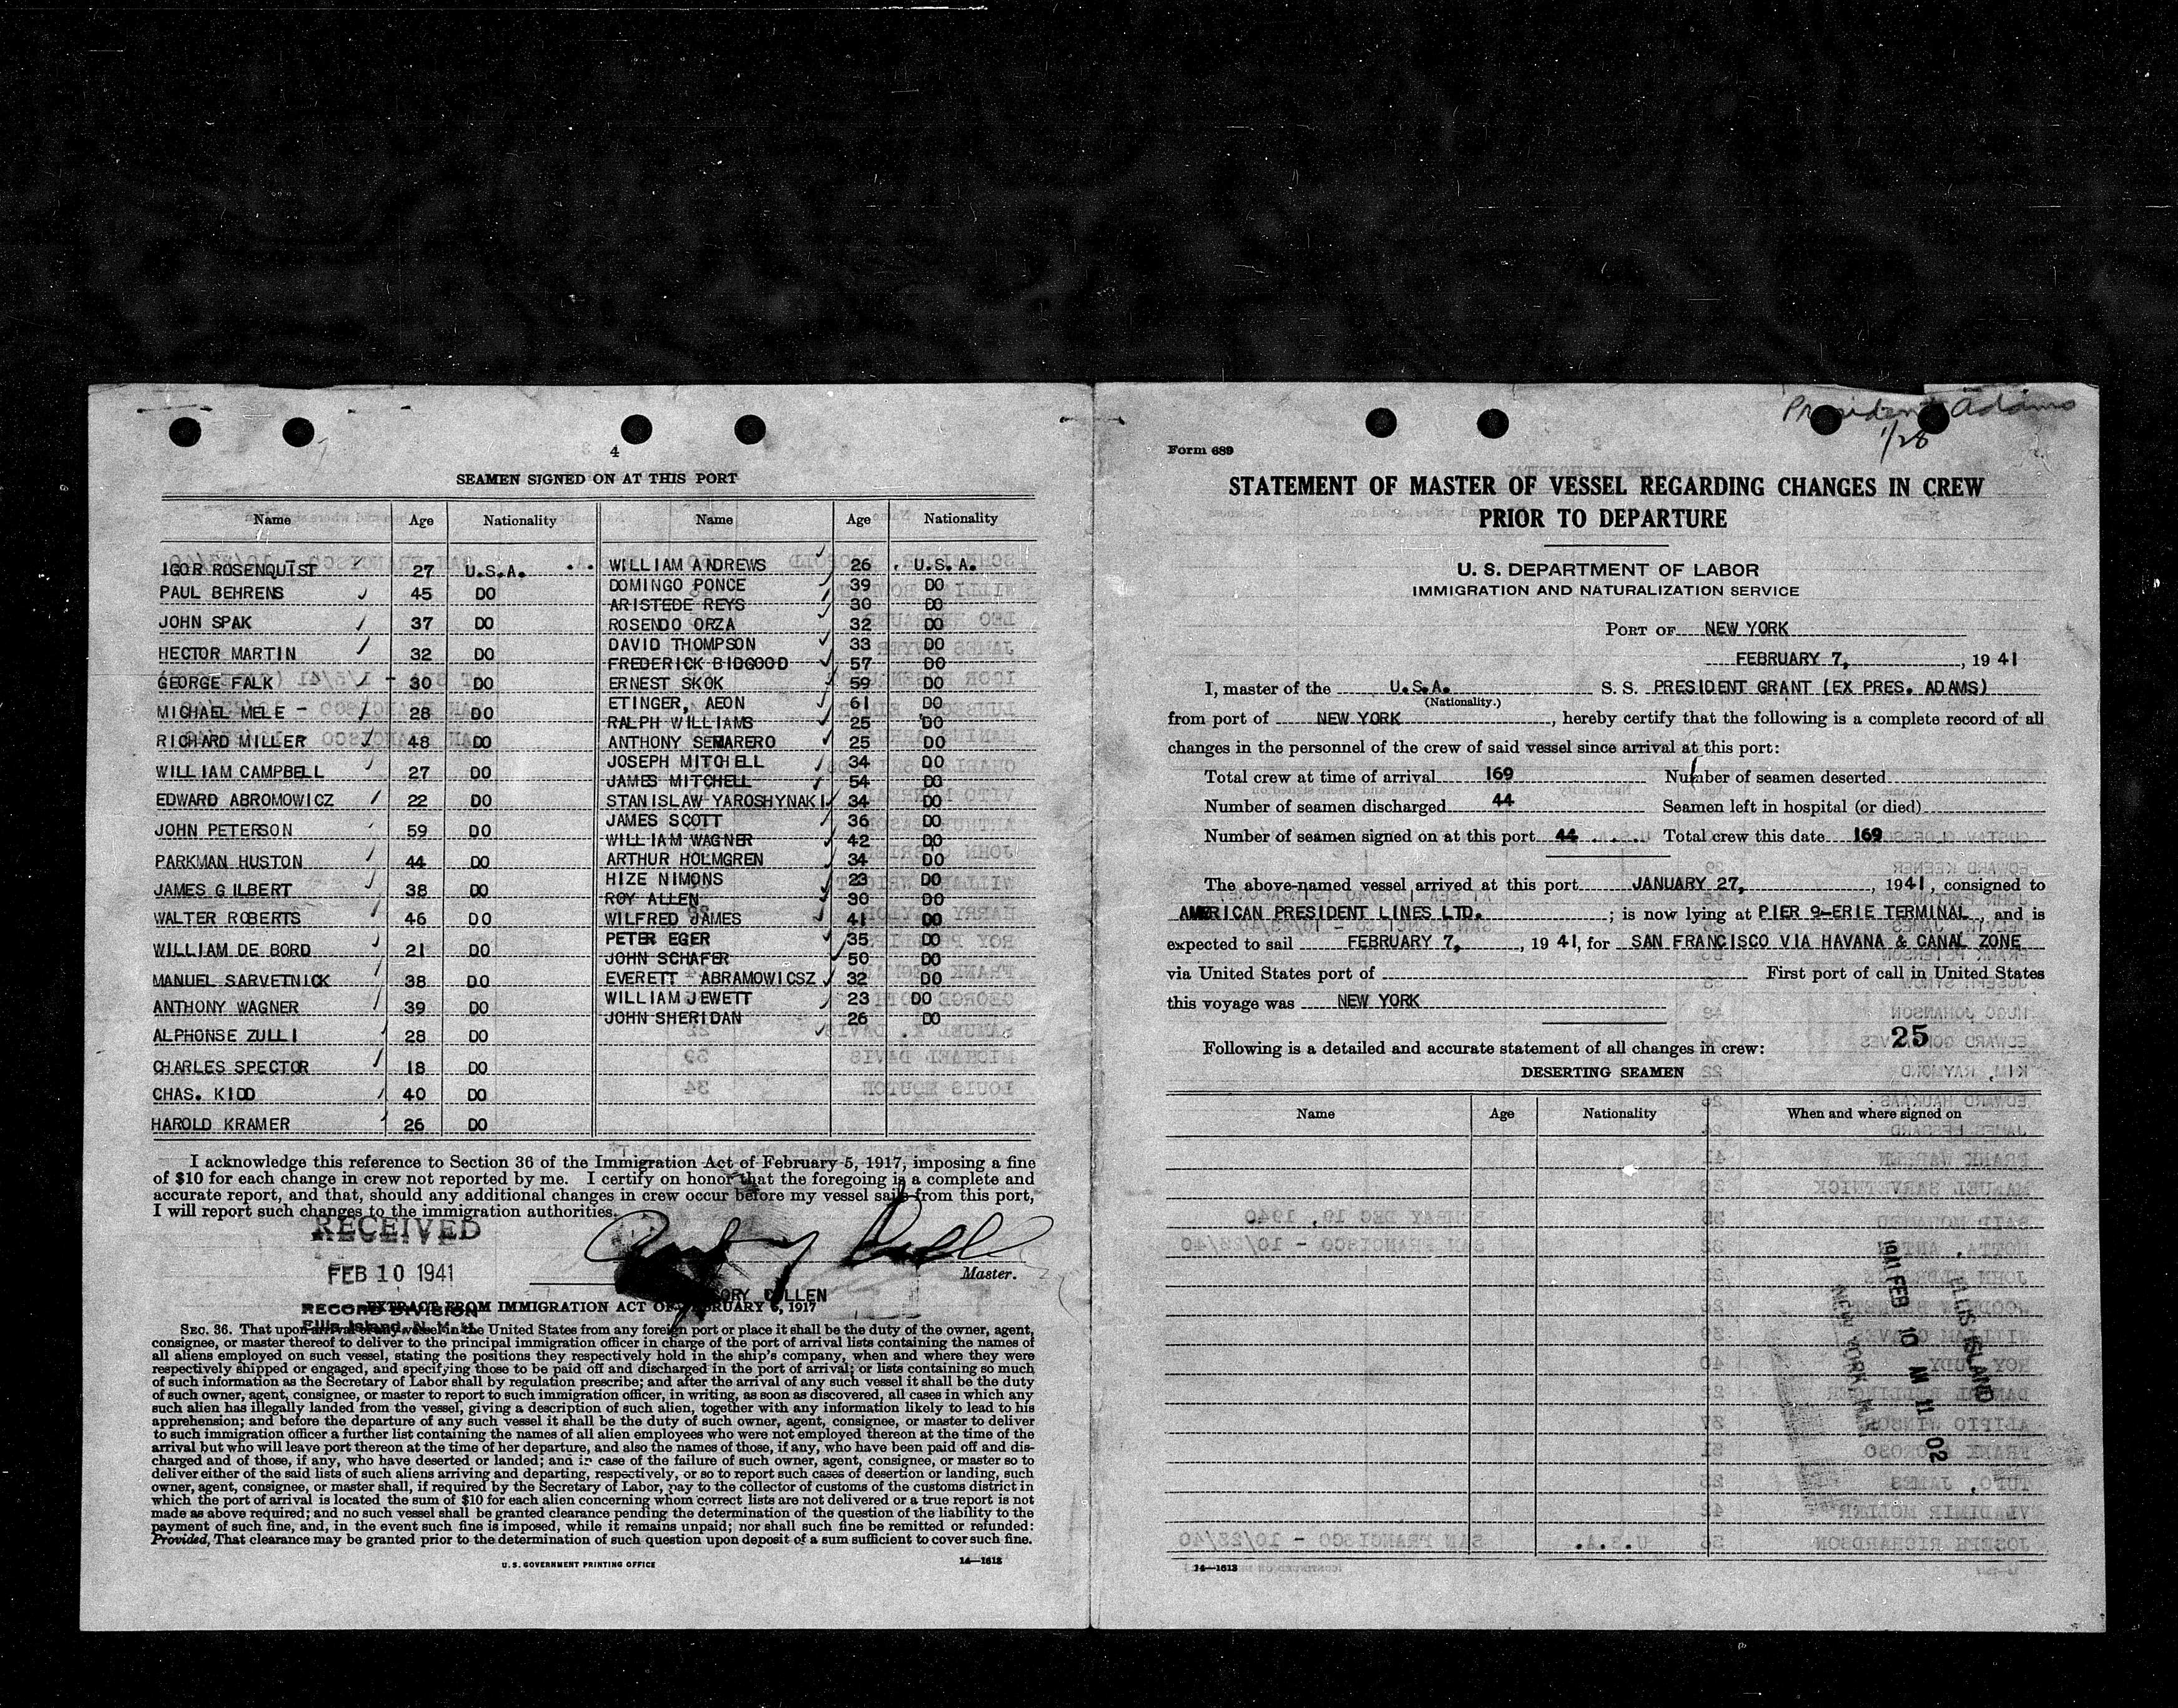 4
SEAMEN SIGNED ON AT THIS PORT
Name Age Nationality Name Age Nationality
IGOR ROSENQUIST 27 U.S.A.
PAUL BEHRENS 45 DO
JOHN SPAK 37 DO
HECTOR MARTIN 32 DO
GEORGE FALK 30 DO
MICHAEL MELE 28 DO
RICHARD MILLER 48 DO
WILLIAM CAMPBELL 27 DO
EDWARD ABROMOWICZ 22 DO
JOHN PETERSON 59 DO
PARKMAN HUSTON 44 DO
JAMES GILBERT 38 DO
WALTER ROBERTS 46 DO
WILLIAM DE BORD 21 DO
MANUEL SARVETNICK 38 DO
ANTHONY WAGNER 39 DO
ALPHONSE ZULLI 28 DO
CHARLES SPECTOR 18 DO
CHAS. KIDD 40 DO
HAROLD KRAMER 26 DO
WILLIAM ANDREWS 26 U.S.A.
DOMINGO PONCE 39 DO
ARISTEDE REYS 30 DO
ROSENDO ORZA 32 DO
DAVID THOMPSON 33 DO
FREDERICK BIDGOOD 57 DO
ERNEST SKOK 59 DO
ETINGER, AEON 61 DO
RALPH WILLIAMS 25 DO
ANTHONY SEMARERO 25 DO
JOSEPH MITCHELL 34 DO
JAMES MITCHELL 54 DO
STANISLAW YAROSHYNAKI 34 DO
JAMES SCOTT 36 DO
WILLIAM WAGNER 42 DO
ARTHUR HOLMGREN 34 DO
HIZE NIMONS 23 DO
ROY ALLEN 30 DO
WILFRED JAMES 41 DO
PETER EGER 35 DO
JOHN SCHAFER 50 DO
EVERETT ABRAMOWICSZ 32 DO
WILLIAM JEWETT 23 DO
JOHN SHERIDAN 26 DO
I acknowledge this reference to Section 36 of the Immigration Act of February 5, 1917, imposing a fine
of $10 for each change in crew not reported by me. I certify on honor that the foregoing is a complete and
accurate report, and that, should any additional changes in crew occur before my vessel sails from this port,
I will report such changes to the immigration authorities.
RECEIVED
FEB 10 1941
RECORD DIVISION
Ellis Island, N.Y.H.
Master.
EXTRACT FROM IMMIGRATION ACT OF FEBRUARY 5, 1917
SEC. 36. That upon arrival of any vessel in the United States from any foreign port or place it shall be the duty of the owner, agent,
consignee, or master thereof to deliver to the principal immigration officer in charge of the port of arrival lists containing the names of
all aliens employed on such vessel, stating the positions they respectively hold in the ship's company, when and where they were
respectively shipped or engaged, and specifying those to be paid off and discharged in the port of arrival; or lists containing so much
of such information as the Secretary of Labor shall by regulation prescribe; and after the arrival of any such vessel it shall be the duty
of such owner, agent, consignee, or master to report to such immigration officer, in writing, as soon as discovered, all cases in which any
such alien has illegally landed from the vessel, giving a description of such alien, together with any information likely to lead to his
apprehension; and before the departure of any such vessel it shall be the duty of such owner, agent, consignee, or master to deliver
to such immigration officer a further list containing the names of all alien employees who were not employed thereon at the time of the
arrival but who will leave port thereon at the time of her departure, and also the names of those, if any, who have been paid off and dis-
charged and of those, if any, who have deserted or landed; and in case of the failure of such owner, agent, consignee, or master so to
deliver either of the said lists of such aliens arriving and departing, respectively, or so to report such cases of desertion or landing, such
owner, agent, consignee, or master shall, if required by the Secretary of Labor, pay to the collector of customs of the customs district in
which the port of arrival is located the sum of $10 for each alien concerning whom correct lists are not delivered or a true report is not
made as above required; and no such vessel shall be granted clearance pending the determination of the question of the liability to the
payment of such fine, and, in the event such fine is imposed, while it remains unpaid; nor shall such fine be remitted or refunded:
Provided, That clearance may be granted prior to the determination of such question upon deposit of a sum sufficient to cover such fine.
U. S. GOVERNMENT PRINTING OFFICE 14—1613
President Adams
1/28
Form 689
STATEMENT OF MASTER OF VESSEL REGARDING CHANGES IN CREW
PRIOR TO DEPARTURE
U. S. DEPARTMENT OF LABOR
IMMIGRATION AND NATURALIZATION SERVICE
PORT OF NEW YORK
FEBRUARY 7, 1941
I, master of the U.S.A. S. S. PRESIDENT GRANT (EX PRES. ADAMS)
(Nationality.)
from port of NEW YORK, hereby certify that the following is a complete record of all
changes in the personnel of the crew of said vessel since arrival at this port:
Total crew at time of arrival 169 Number of seamen deserted
Number of seamen discharged 44 Seamen left in hospital (or died)
Number of seamen signed on at this port 44 Total crew this date 169
The above-named vessel arrived at this port JANUARY 27, 1941, consigned to
AMERICAN PRESIDENT LINES LTD. ; is now lying at PIER 9-ERIE TERMINAL, and is
expected to sail FEBRUARY 7, 1941, for SAN FRANCISCO VIA HAVANA & CANAL ZONE
via United States port of First port of call in United States
this voyage was NEW YORK
25
Following is a detailed and accurate statement of all changes in crew:
DESERTING SEAMEN
Name Age Nationality When and where signed on
1941 FEB 10 AM 11 02
ELLIS ISLAND
NEW YORK
14—1613